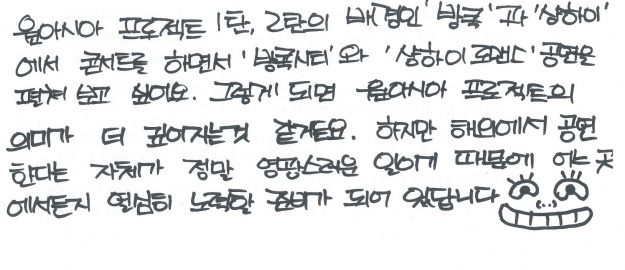 윰아시아 프로젝트 1탄, 2탄의 배경인 '방콕'과 '상하이'
에서 콘서트를 하면서 '방콕시티'와 '상하이 로맨스' 공연을
펼쳐 보고 싶어요. 그렇게 되면 윰아시아 프로젝트의
의미가 더 깊어지는것 같거든요. 하지만 해외에서 공연
한다는 자체가 정말 영광스러운 일이기 때문에 어느 곳
에서든지 열심히 노력할 준비가 되어 있답니다